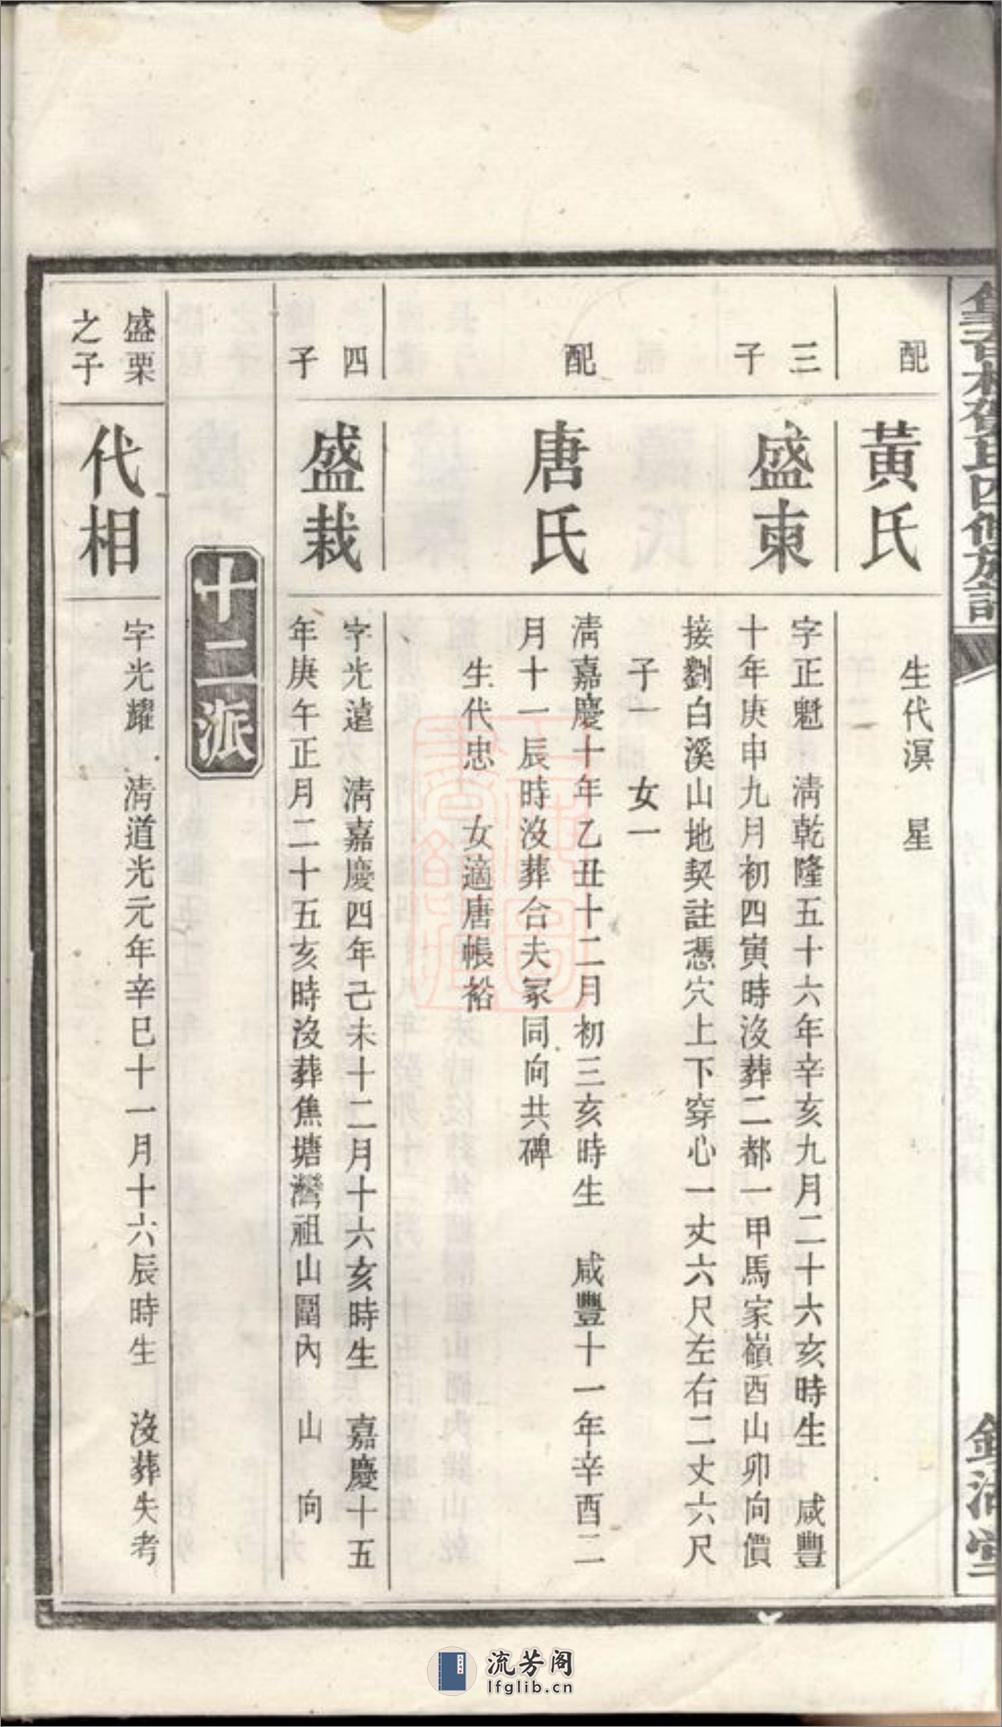 配
黃氏
生代溟 星
三子
盛柬
字正魁 淸乾隆五十六年辛亥九月二十六亥時生 咸豐
十年庚申九月初四寅時沒葬二都一甲馬家嶺酉山卯向價
接劉白溪山地契註憑穴上下穿心一丈六尺左右二丈六尺
子一 女一
配
唐氏
淸嘉慶十年乙丑十二月初三亥時生 咸豐十一年辛酉二
月十一辰時沒葬合夫冢同向共碑
生代忠 女適唐帳裕
四子
盛栽
字光遠 淸嘉慶四年己未十二月十六亥時生 嘉慶十五
年庚午正月二十五亥時沒葬焦塘灣祖山圍內 山 向
十二派
盛栗
之子
代相
字光耀 淸道光元年辛巳十一月十六辰時生 沒葬失考
流芳阁
lfglib.cn